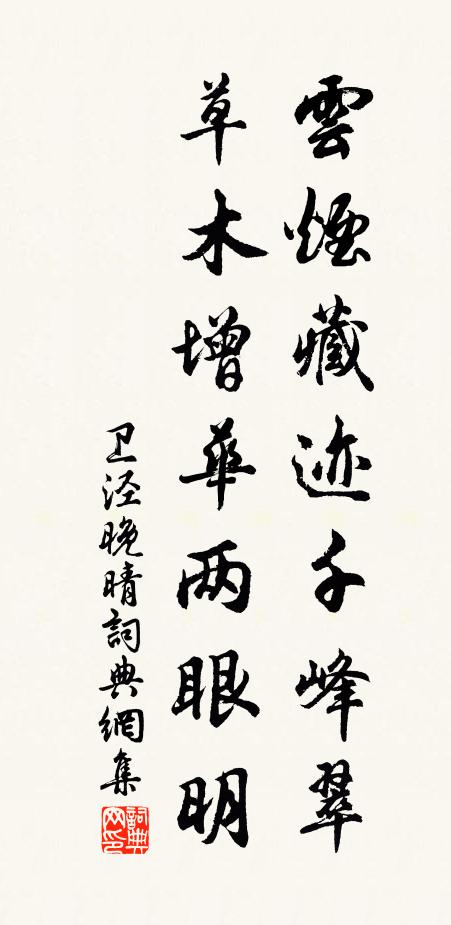 雲煙藏迹千峰翠
草木增華两眼明
卫泾晚晴詞典網集
詞典网印